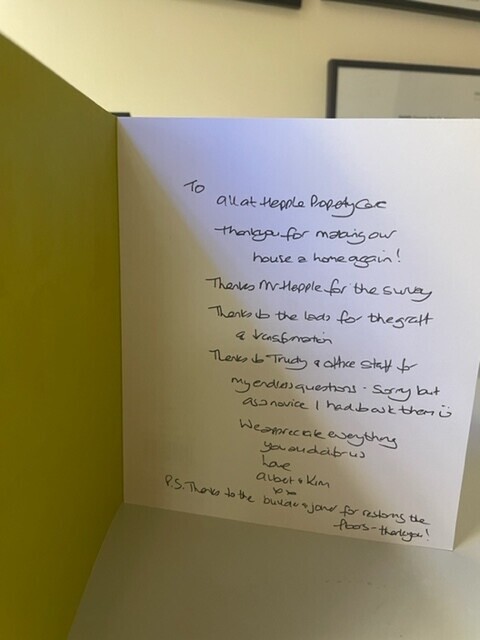 To
all at Hepple Property Care
Thankyou for making our
house a home again!
Thanks Mr Hepple for the survey
Thanks to the lads for the graft
& transformation
Thanks to Trudy & office staff for
my endless questions - sorry but
as a novice I had to ask them
We appreciate everything
you all did for us
Love
Albert & Kim
xx
P.S. Thanks to the builder & joiner for restoring the
floors - thankyou!